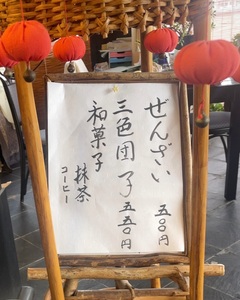 ぜんざい 五〇〇円
三色団子 五五〇円
和菓子
抹茶
コーヒー